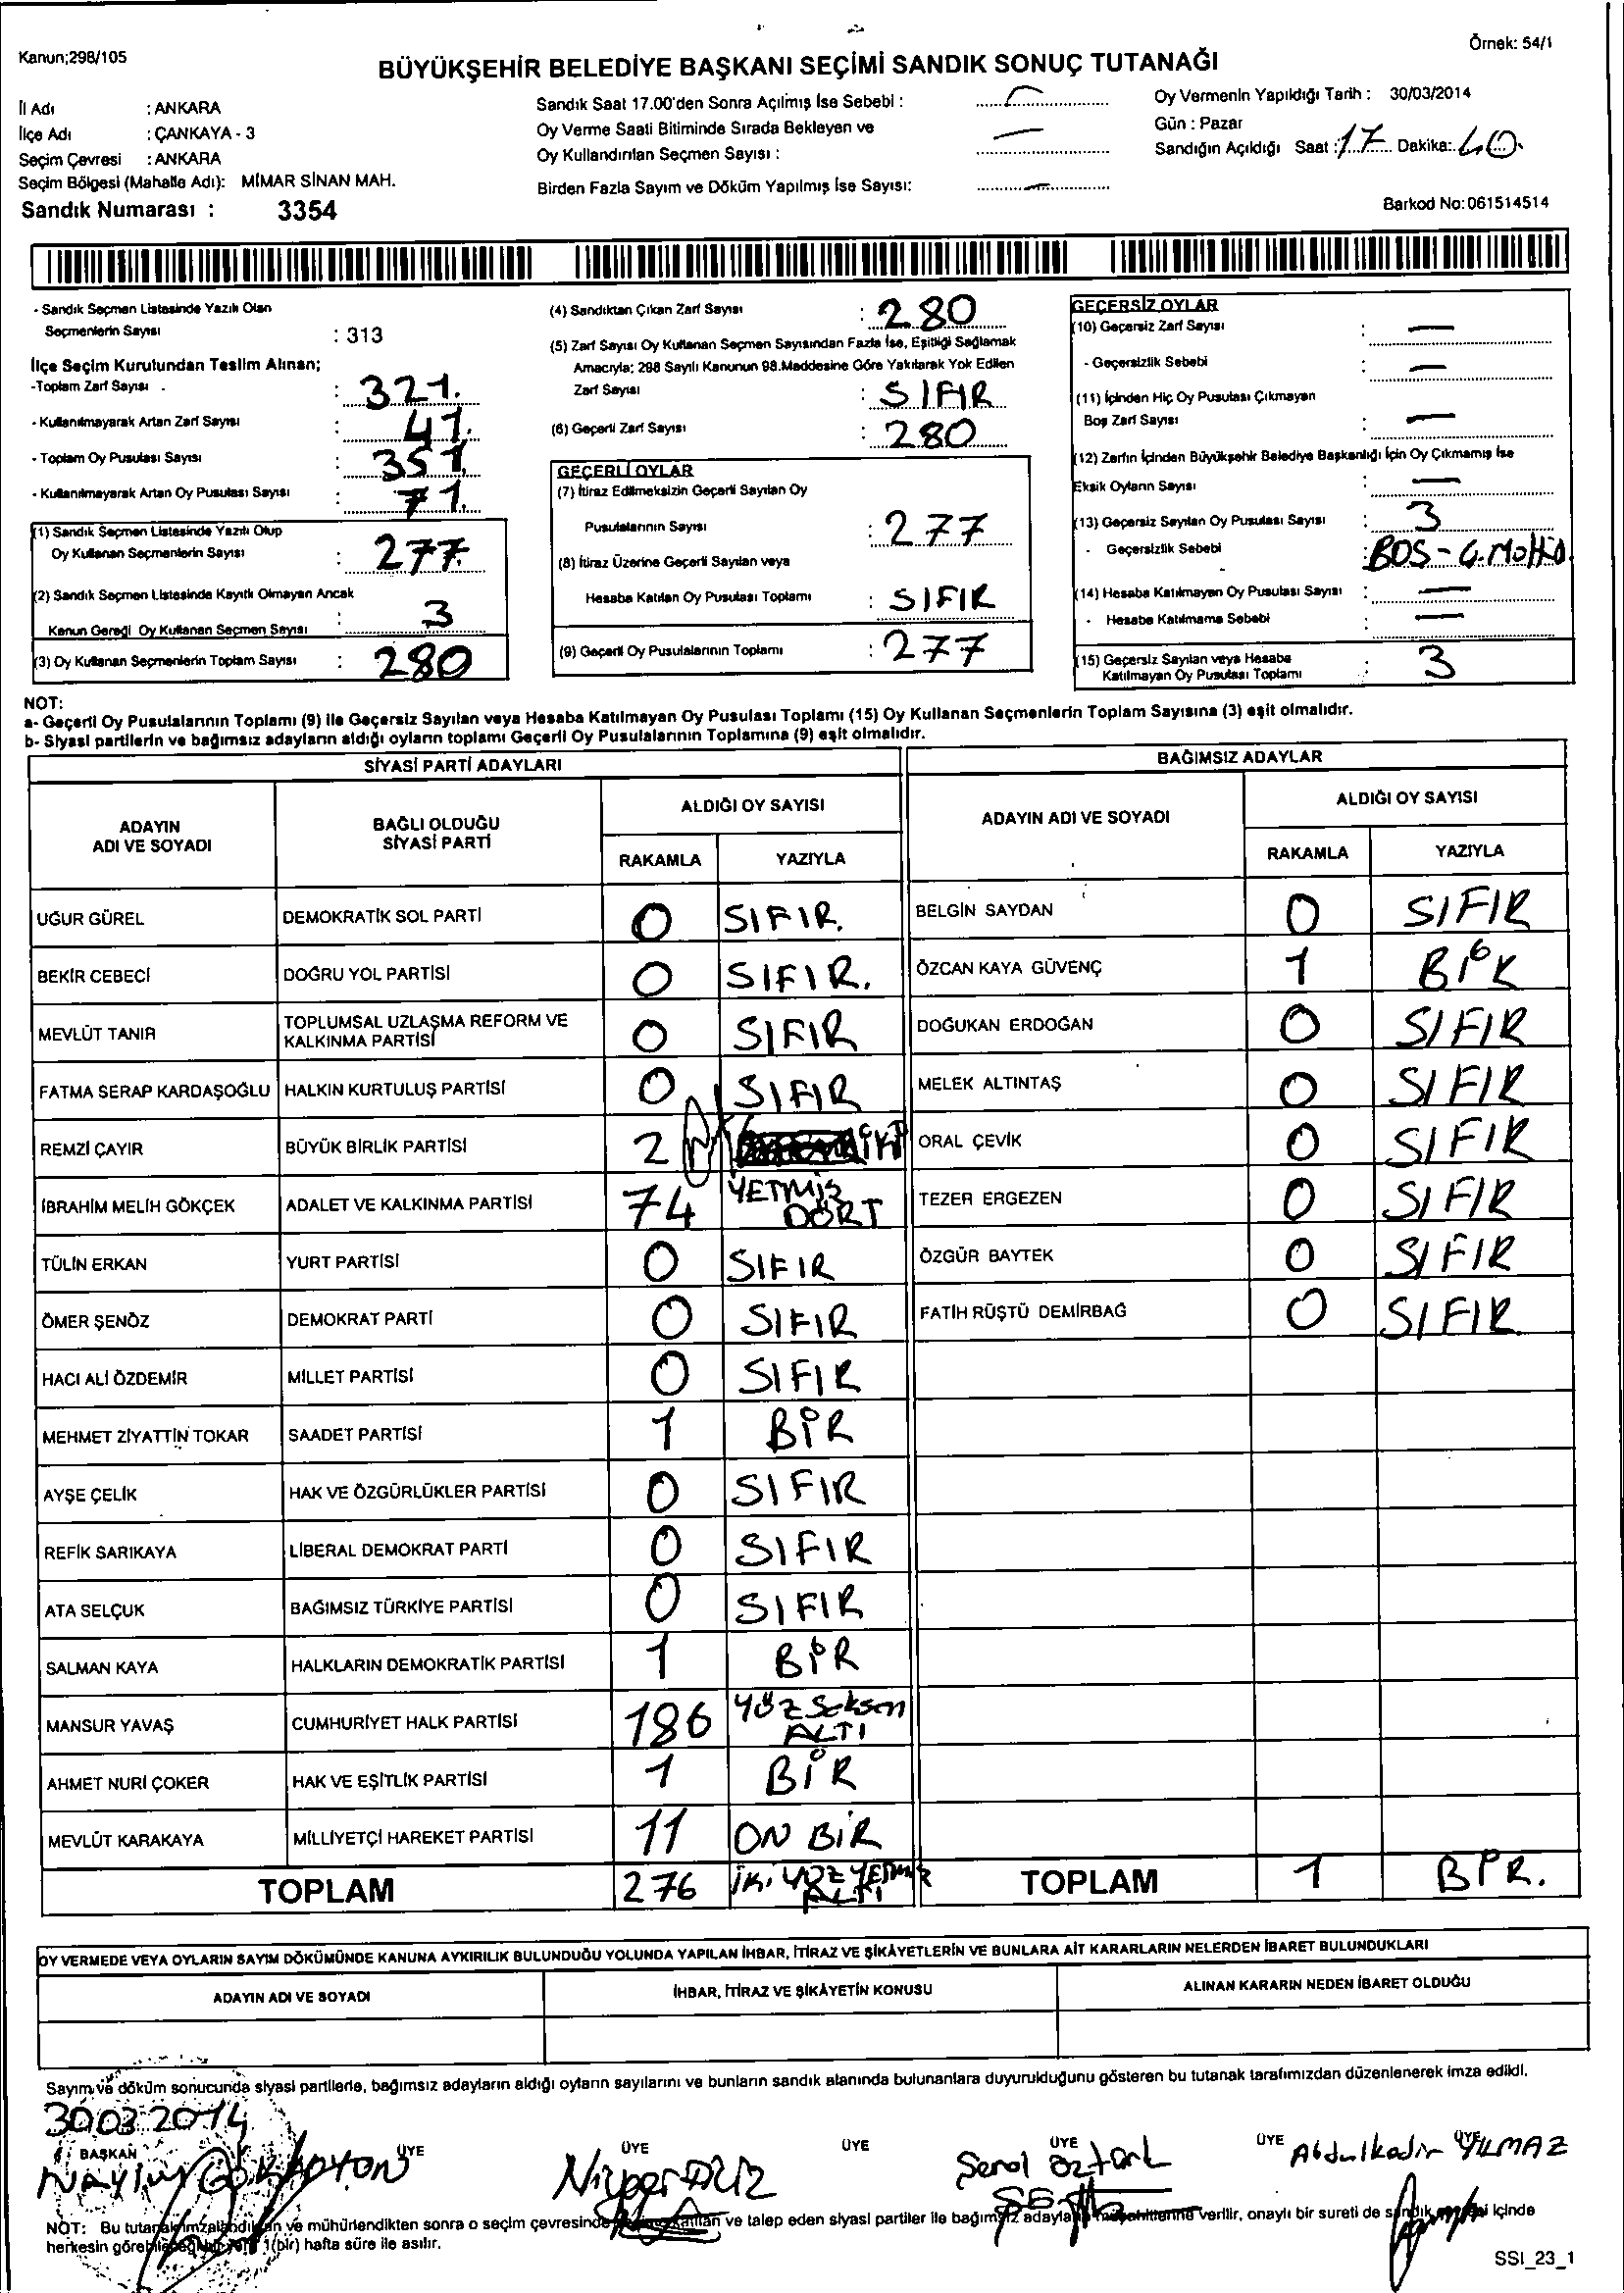 Kanun;298/105
Örnek: 54/1
BÜYÜKŞEHİR BELEDİYE BAŞKANI SEÇİMİ SANDIK SONUÇ TUTANAĞI
İl Adı : ANKARA
İlçe Adı : ÇANKAYA - 3
Seçim Çevresi : ANKARA
Seçim Bölgesi (Mahalle Adı): MİMAR SİNAN MAH.
Sandık Numarası : 3354
Sandık Saat 17.00'den Sonra Açılmış İse Sebebi :
Oy Verme Saati Bitiminde Sırada Bekleyen ve
Oy Kullandırılan Seçmen Sayısı : —
Birden Fazla Sayım ve Döküm Yapılmış İse Sayısı: —
Oy Vermenin Yapıldığı Tarih : 30/03/2014
Gün : Pazar
Sandığın Açıldığı Saat : 17 Dakika: 40
Barkod No:061514514
- Sandık Seçmen Listesinde Yazılı Olan
Seçmenlerin Sayısı : 313
İlçe Seçim Kurulundan Teslim Alınan;
-Toplam Zarf Sayısı : 321.
- Kullanılmayarak Artan Zarf Sayısı : 41.
- Toplam Oy Pusulası Sayısı : 351.
- Kullanılmayarak Artan Oy Pusulası Sayısı : 71.
(1) Sandık Seçmen Listesinde Yazılı Olup
Oy Kullanan Seçmenlerin Sayısı : 277
(2) Sandık Seçmen Listesinde Kayıtlı Olmayan Ancak
Kanun Gereği Oy Kullanan Seçmen Sayısı : 3
(3) Oy Kullanan Seçmenlerin Toplam Sayısı : 280
(4) Sandıktan Çıkan Zarf Sayısı : 280
(5) Zarf Sayısı Oy Kullanan Seçmen Sayısından Fazla İse, Eşitliği Sağlamak
Amacıyla; 298 Sayılı Kanunun 98.Maddesine Göre Yakılarak Yok Edilen
Zarf Sayısı : SIFIR
(6) Geçerli Zarf Sayısı : 280
GEÇERLİ OYLAR
(7) İtiraz Edilmeksizin Geçerli Sayılan Oy
Pusulalarının Sayısı : 277
(8) İtiraz Üzerine Geçerli Sayılan veya
Hesaba Katılan Oy Pusulası Toplamı : SIFIR
(9) Geçerli Oy Pusulalarının Toplamı : 277
GEÇERSİZ OYLAR
(10) Geçersiz Zarf Sayısı : —
- Geçersizlik Sebebi : —
(11) İçinden Hiç Oy Pusulası Çıkmayan
Boş Zarf Sayısı : —
(12) Zarfın İçinden Büyükşehir Belediye Başkanlığı İçin Oy Çıkmamış İse
Eksik Oyların Sayısı : —
(13) Geçersiz Sayılan Oy Pusulası Sayısı : 3
- Geçersizlik Sebebi : BOS -
(14) Hesaba Katılmayan Oy Pusulası Sayısı : —
- Hesaba Katılmama Sebebi : —
(15) Geçersiz Sayılan veya Hesaba
Katılmayan Oy Pusulası Toplamı : 3
NOT:
a- Geçerli Oy Pusulalarının Toplamı (9) ile Geçersiz Sayılan veya Hesaba Katılmayan Oy Pusulası Toplamı (15) Oy Kullanan Seçmenlerin Toplam Sayısına (3) eşit olmalıdır.
b- Siyasi partilerin ve bağımsız adayların aldığı oyların toplamı Geçerli Oy Pusulalarının Toplamına (9) eşit olmalıdır.
SİYASİ PARTİ ADAYLARI
ADAYIN ADI VE SOYADI
BAĞLI OLDUĞU SİYASİ PARTİ
ALDIĞI OY SAYISI
RAKAMLA YAZIYLA
UĞUR GÜREL DEMOKRATİK SOL PARTİ 0 SIFIR.
BEKİR CEBECİ DOĞRU YOL PARTİSİ 0 SIFIR.
MEVLÜT TANIR TOPLUMSAL UZLAŞMA REFORM VE KALKINMA PARTİSİ 0 SIFIR
FATMA SERAP KARDAŞOĞLU HALKIN KURTULUŞ PARTİSİ 0 SIFIR
REMZİ ÇAYIR BÜYÜK BİRLİK PARTİSİ 2 İKİ
İBRAHİM MELİH GÖKÇEK ADALET VE KALKINMA PARTİSİ 74 YETMİŞ DÖRT
TÜLİN ERKAN YURT PARTİSİ 0 SIFIR
ÖMER ŞENÖZ DEMOKRAT PARTİ 0 SIFIR
HACI ALİ ÖZDEMİR MİLLET PARTİSİ 0 SIFIR
MEHMET ZİYATTİN TOKAR SAADET PARTİSİ 1 BİR
AYŞE ÇELİK HAK VE ÖZGÜRLÜKLER PARTİSİ 0 SIFIR
REFİK SARIKAYA LİBERAL DEMOKRAT PARTİ 0 SIFIR
ATA SELÇUK BAĞIMSIZ TÜRKİYE PARTİSİ 0 SIFIR
SALMAN KAYA HALKLARIN DEMOKRATİK PARTİSİ 1 BİR
MANSUR YAVAŞ CUMHURİYET HALK PARTİSİ 186 YÜZ Seksen ALTI
AHMET NURİ ÇOKER HAK VE EŞİTLİK PARTİSİ 1 BİR
MEVLÜT KARAKAYA MİLLİYETÇİ HAREKET PARTİSİ 11 ON BİR
TOPLAM 276 İKİ YÜZ YETMİŞ ALTI
BAĞIMSIZ ADAYLAR
ADAYIN ADI VE SOYADI
ALDIĞI OY SAYISI
RAKAMLA YAZIYLA
BELGİN SAYDAN 0 SIFIR
ÖZCAN KAYA GÜVENÇ 1 BİR
DOĞUKAN ERDOĞAN 0 SIFIR
MELEK ALTINTAŞ 0 SIFIR
ORAL ÇEVİK 0 SIFIR
TEZER ERGEZEN 0 SIFIR
ÖZGÜR BAYTEK 0 SIFIR
FATİH RÜŞTÜ DEMİRBAĞ 0 SIFIR
TOPLAM 1 BİR.
OY VERMEDE VEYA OYLARIN SAYIM DÖKÜMÜNDE KANUNA AYKIRILIK BULUNDUĞU YOLUNDA YAPILAN İHBAR, İTİRAZ VE ŞİKÂYETLERİN VE BUNLARA AİT KARARLARIN NELERDEN İBARET BULUNDUKLARI
ADAYIN ADI VE SOYADI
İHBAR, İTİRAZ VE ŞİKÂYETİN KONUSU
ALINAN KARARIN NEDEN İBARET OLDUĞU
Sayım ve döküm sonucunda siyasi partilerle, bağımsız adayların aldığı oyların sayılarını ve bunların sandık alanında bulunanlara duyurulduğunu gösteren bu tutanak tarafımızdan düzenlenerek imza edildi.
30 03 2014
BAŞKAN ÜYE ÜYE ÜYE ÜYE ÜYE ÜYE
Serol Öztürk
Abdulkadir YILMAZ
NOT: Bu tutanak imzalandıktan ve mühürlendikten sonra o seçim çevresinde ve talep eden siyasi partiler ile bağımsız adayların müşahitlerine verilir, onaylı bir sureti de sandık içinde
herkesin 1(bir) hafta süre ile asılır.
SSI_23_1